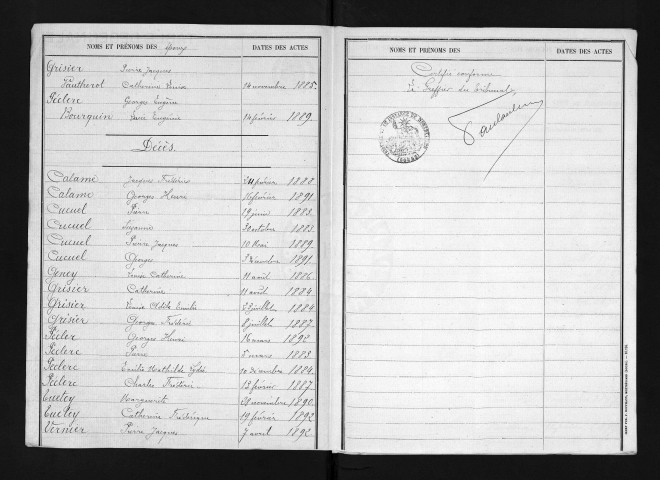 NOMS ET PRÉNOMS DES époux DATES DES ACTES
Grisier Pierre Jacques
Pautherot Catherine Louise 14 novembre 1885.
Péclere Georges Eugène
Bourquin Eugénie 14 février 1889.
Décès.
Calame Jacques Frédéric février 1888
Calame Georges Henri 16 février 1891
Cucuel Pierre 19 juin 1883.
Cucuel Suzanne 30 octobre 1883.
Cucuel Pierre Jacques 10 Mai 1889.
Cucuel Georges 1891
Geney Louise Catherine 11 août 1886.
Grisier Catherine 11 août 1884
Grisier Emilie 23 juillet 1884
Grisier George Frédéric 8 juillet 1887.
Pécler Georges Henri 16 mars 1892.
Péclere Pierre 5 mars 1883.
Péclere Emilie Mathilde Lydie 10 décembre 1884.
Péclere Charles Frédéric 13 février 1887.
Marguerite 28 novembre 1890.
Catherine Frédérique 19 février 1892
Vernier Pierre Jacques 7 avril 1892.
NOMS ET PRÉNOMS DES DATES DES ACTES
Certifié conforme
Le Greffier du Tribunal